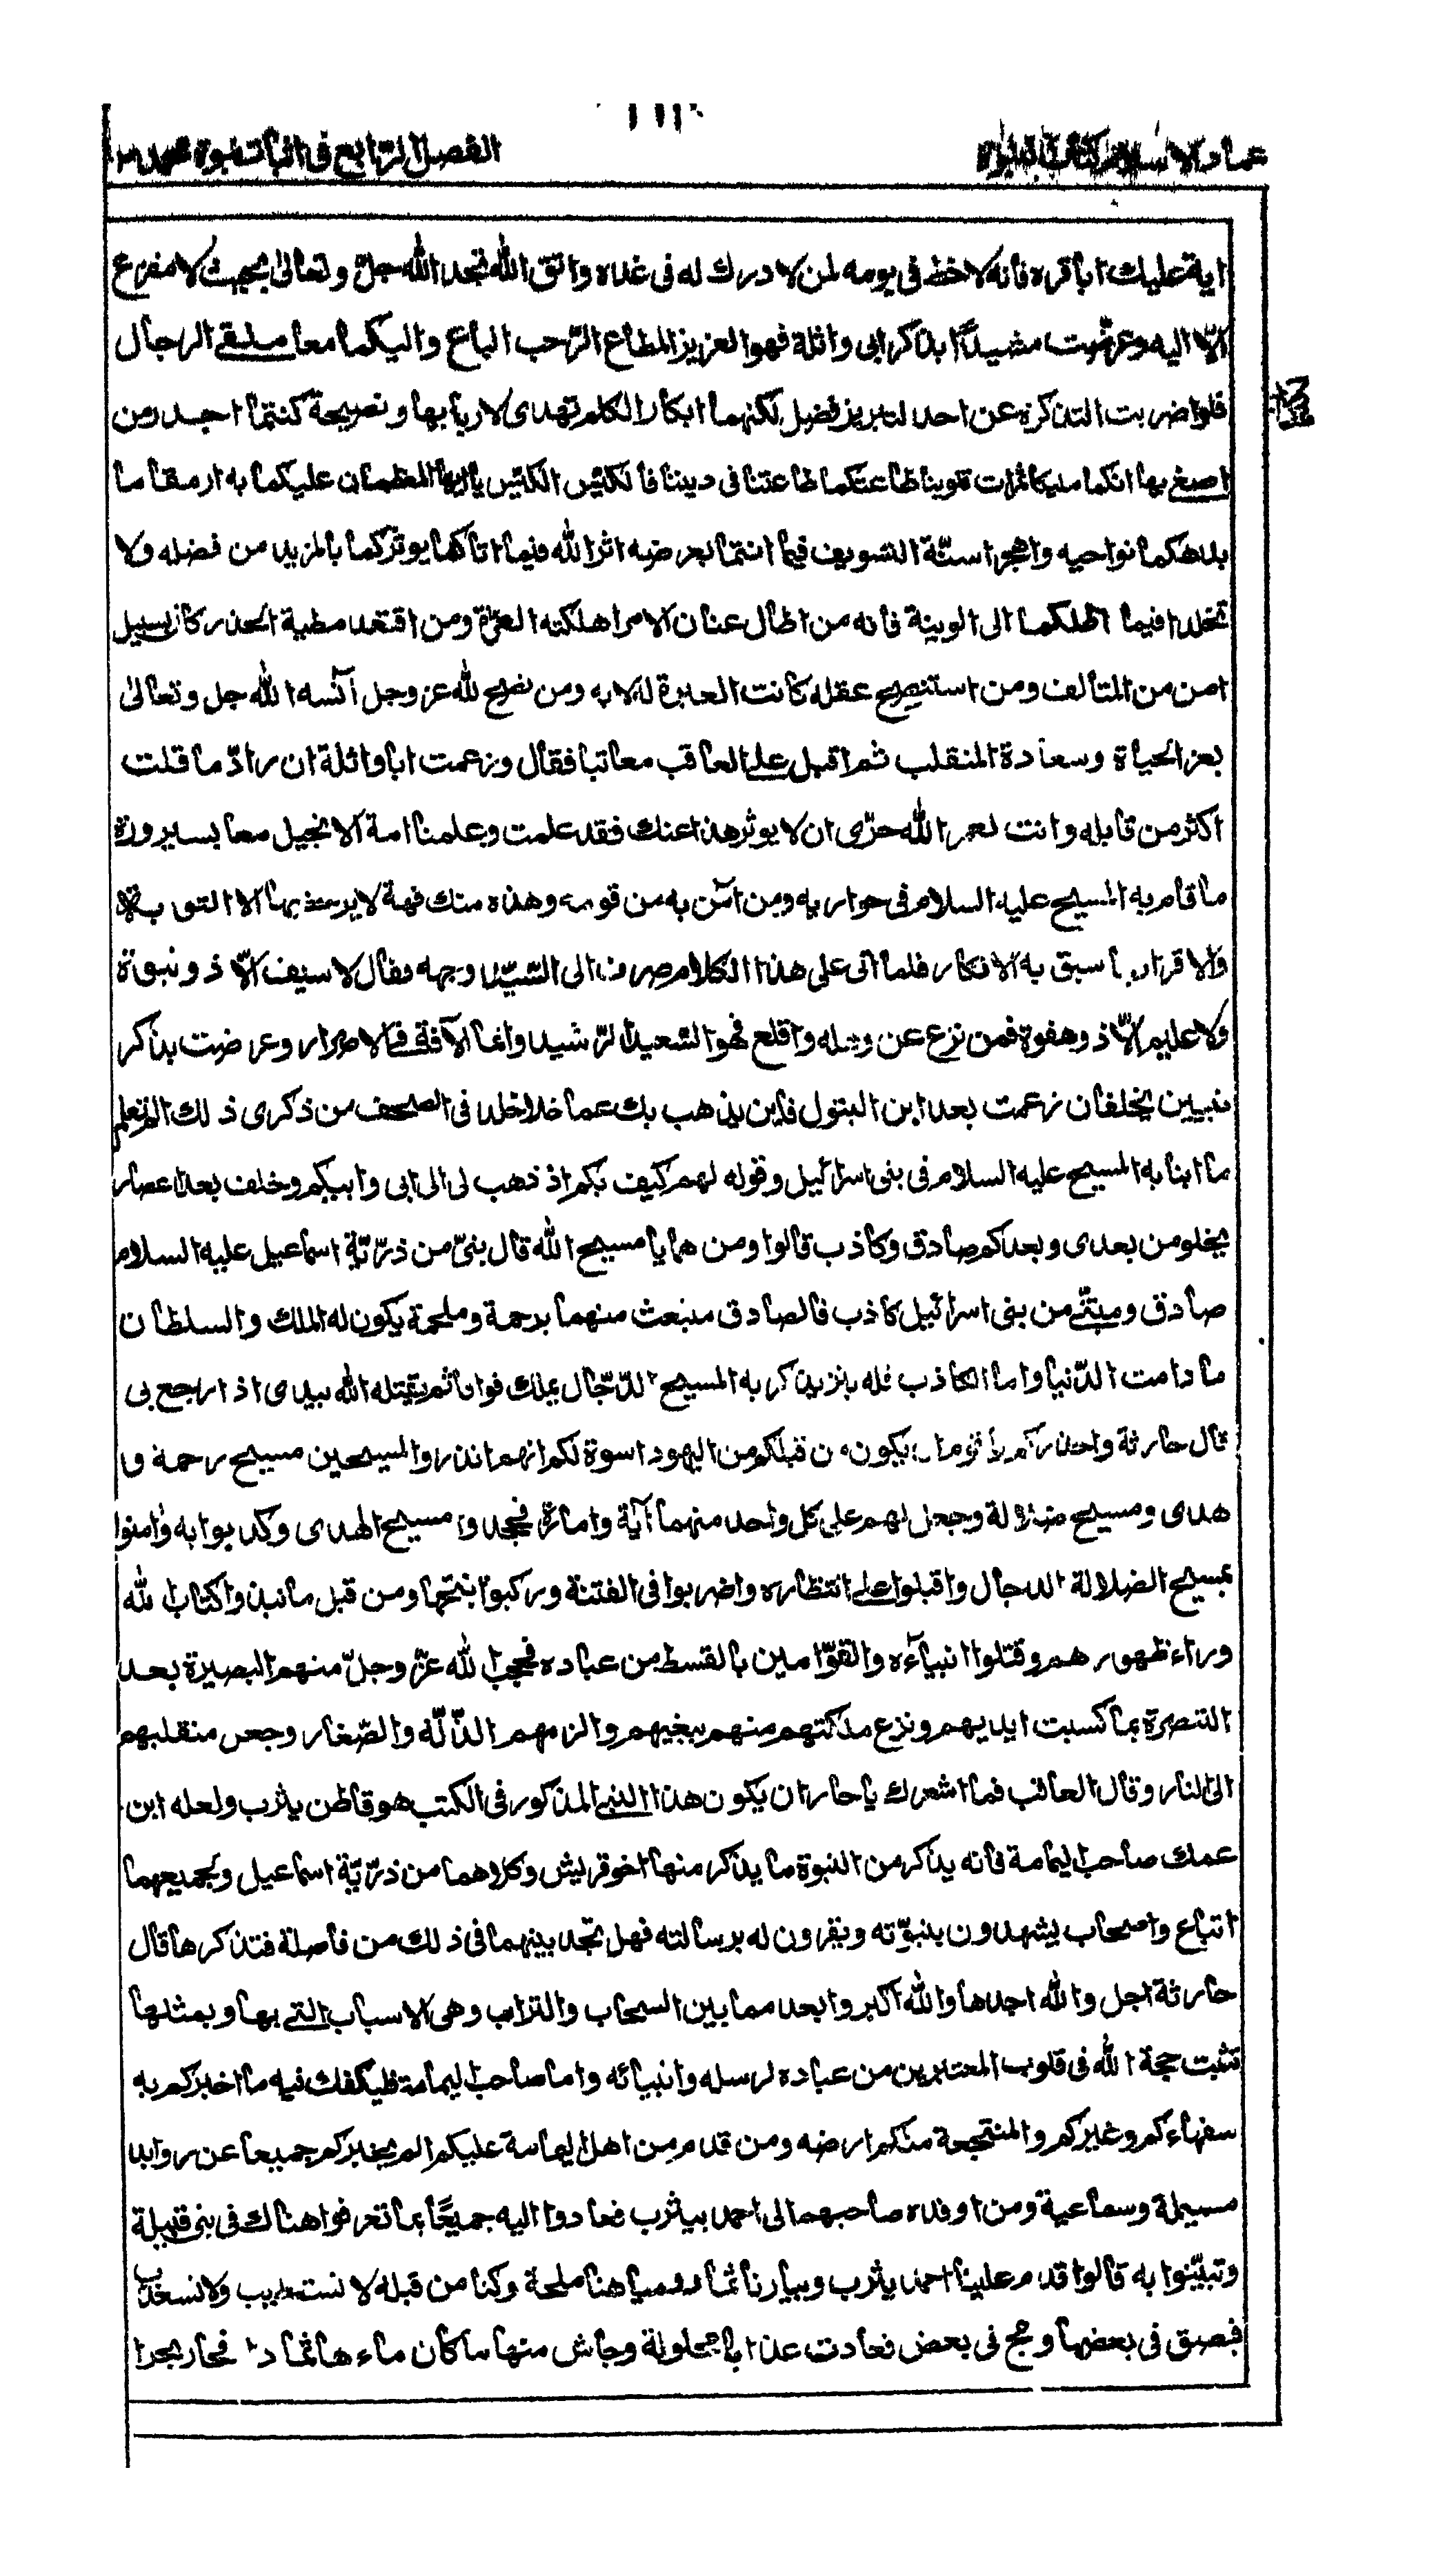 عماد الاسلام كتاب النبوة
الفصل الرابع فى اثبات نبوة محمد
اية عليك ابا قره فانه لا خظ فى يومه لمن لا درك له فى غده واتق الله تجد الله جلّ وتعالىٰ بحيث لا مفزع
الّا اليه وعرضت مشيدًا بذكر ابى واثلة فهو العزيز المطاع الرّحب الباع واليكما معا ملقى الرجال
فلو اضربت التذكرة عن احد لتبريز فضل لكنتما ابكار الكلم تهدى لاربابها ونصيحة كنتما اجدر من
اصغى بها انكما مليكا ثمرات قلوبنا طاعتكما طاعتنا فى ديننا فالكيّس الكيّس يا ايها المعظمان عليكما به ارمقا ما
بدهكما نواحيه واهجرا سنّة التسويف فيما انتما بعرضه اثرا لله فيما اتاكما يوثركما بالمزيد من فضله ولا
تخلدا فيما اظلكما الى الوينة فانه من اطال عنان الامر اهلكته الغرّة ومن اقتعد مطية الحذر كان بسبيل
امن من المتالف ومن استنصح عقله كانت العبرة له لا به ومن نصح لله عز وجل آنسه الله جل وتعالىٰ
بعز الحياة وسعادة المنقلب ثم اقبل على العاقب معاتبا فقال وزعمت ابا واثلة ان رادّ ما قلت
اكثر من قابله وانت لعمر الله حرّى ان لا يوثر هذا عنك فقد علمت وعلمنا امة الانجيل معا بسيرورة
ما قام به المسيح عليه السلام فى حواريه ومن آمن به من قومه وهذه منك فهة لا يرحضها الا التوبة
والاقرار بما سبق به الانكار فلما اتى على هذا الكلام صرف الى السّيّد وجهه فقال لا سيف الّا ذو نبوة
ولا عليم الّا ذو هفوة فمن نزع عن وهله واقلع فهو السّعيد الرّشيد وانما الآفة فى الاصرار وعرضت بذكر
نبيين يخلفان زعمت بعد ابن البتول فاين يذهب بك عما خلا خلد فى الصحف من ذكرى ذلك الم تعلم
ما انبا به المسيح عليه السلام فى بنى اسرائيل وقوله لهم كيف بكم اذ ذهب لى الى ابى وابيكم وخلف بعد اعصار
يخلو من بعدى وبعدكم صادق وكاذب قالوا ومن هما يا مسيح الله قال نبىّ من ذرّيّة اسماعيل عليه السلام
صادق ومتنبّى من بنى اسرائيل كاذب فالصادق منبعث منهما برحمة وملحمة يكون له الملك والسلطان
ما دامت الدّنيا واما الكاذب فله نبز يذكر به المسيح الدّجّال يملك فواقا ثم يقتله الله بيدى اذا رجع بى
قال حارثة واحذركم يا قوم ان يكون من قبلكم من اليهود اسوة لكم انهم انذروا بمسيحين مسيح رحمة و
هدى ومسيح ضلالة وجعل لهم على كل واحد منهما آية وامارة فجحدوا مسيح الهدى وكذبوا به وامنوا
بمسيح الضلالة الدجال واقبلوا على انتظاره واضربوا فى الفتنة وركبوا نتجها ومن قبل ما نبذوا كتاب الله
وراء ظهورهم وقتلوا انبياءه والقوّامين بالقسط من عباده فحجب الله عزّ وجلّ منهم البصيرة بعد
التبصرة بما كسبت ايديهم ونزع ملكتهم منهم ببغيهم والزمهم الذّلّة والصّغار وجعل منقلبهم
الى النار وقال العاقب فما اشعرك يا حار ان يكون هذا النبى المذكور فى الكتب هو قاطن يثرب ولعله ابن
عمك صاحب اليمامة فانه يذكر من النبوة ما يذكر منها اخو قريش وكلاهما من ذرّيّة اسماعيل ولجميعهما
اتباع واصحاب يشهدون بنبوّته ويقرون له برسالته فهل تجد بينهما فى ذلك من فاصلة فتذكرها قال
حارثة اجل والله اجدها والله اكبر وابعد مما بين السحاب والتراب وهى الاسباب التى بها وبمثلها
تثبت حجة الله فى قلوب المعتبرين من عباده لرسله وانبيائه واما صاحب اليمامة فليكفك فيه ما اخبركم به
سفهاءكم وغيركم والمنتجعة منكم ارضه ومن قدم من اهل اليمامة عليكم الم يخبركم جميعا عن رواد
مسيلمة وسماعيه ومن اوفده صاحبهما الى احمد بيثرب فعادوا اليه جميعًا بما تعرفوا هناك فى بنى قيلة
وتبيّنوا به قالوا قدم علينا احمد يثرب وبيارنا ثماد ومياهنا ملحة وكنا من قبله لا نستطيب ولا نستعذب
فبصق فى بعضها ومج فى بعض فعادت عذابا محلولة وجاش منها ما كان ماءها ثمادا فحار بحرا